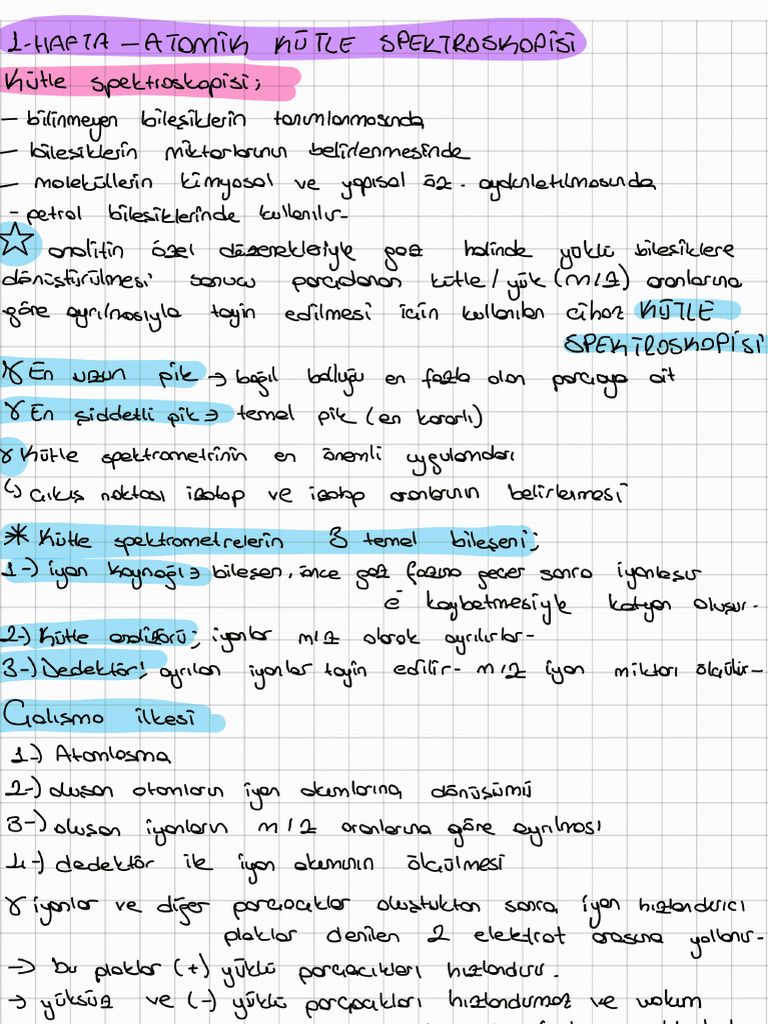 1-HAFTA – ATOMİK KÜTLE SPEKTROSKOPİSİ
Kütle spektroskopisi;
– bilinmeyen bileşiklerin tanımlanmasında
– bileşiklerin miktarlarının belirlenmesinde
– moleküllerin kimyasal ve yapısal öz. aydınlatılmasında
– petrol bileşiklerinde kullanılır-
☆ analitin özel düzenekleriyle gaz halinde yüklü bileşiklere
dönüştürülmesi sonucu parçalanan kütle/yük (m/z) oranlarına
göre ayrılmasıyla tayin edilmesi için kullanılan cihaz KÜTLE
SPEKTROSKOPİSİ
४ En uzun pik → bağıl bolluğu en fazla olan parçaya ait
४ En şiddetli pik → temel pik (en kararlı)
४ Kütle spektrometrinin en önemli uygulamaları
↳ çıkış noktası izotop ve izotop oranlarının belirlenmesi
* Kütle spektrometrelerin 3 temel bileşeni;
1-) iyon kaynağı → bileşen, önce gaz fazına geçer sonra iyonlaşır
e⁻ kaybetmesiyle katyon oluşur.
2-) Kütle analizörü; iyonlar m/z olarak ayrılırlar-
3-) Dedektör; ayrılan iyonlar tayin edilir- m/z iyon miktarı ölçülür-
Çalışma ilkesi
1-) Atomlaşma
2-) oluşan atomların iyon akımlarına dönüşümü
3-) oluşan iyonların m/z oranlarına göre ayrılması
4-) dedektör ile iyon akımının ölçülmesi
४ iyonlar ve diğer parçacıklar oluştuktan sonra, iyon hızlandırıcı
plaklar denilen 2 elektrot arasına yollanır-
→ bu plaklar (+) yüklü parçacıkları hızlandırır.
→ yüksüz ve (-) yüklü parçacıkları hızlandırmaz ve vakum